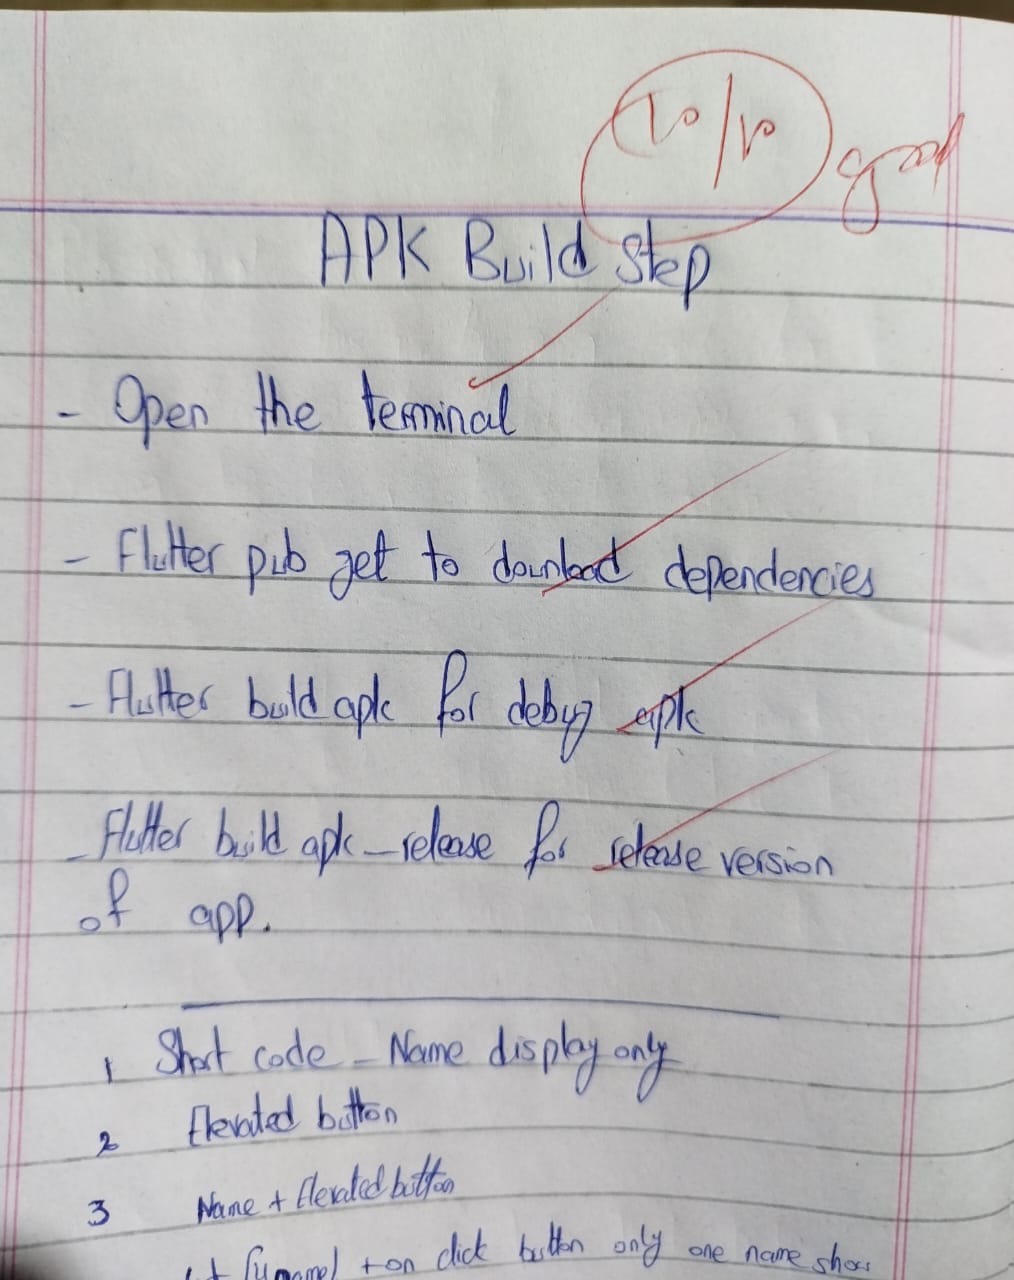 10/10 good
APK Build Step
- Open the terminal
- Flutter pub get to download dependencies
- Flutter build apk for debug apk
- Flutter build apk - release for release version
of app.
1 Short code - Name display only
2 Elevated button
3 Name + Elevated button
+ on click button only one name show